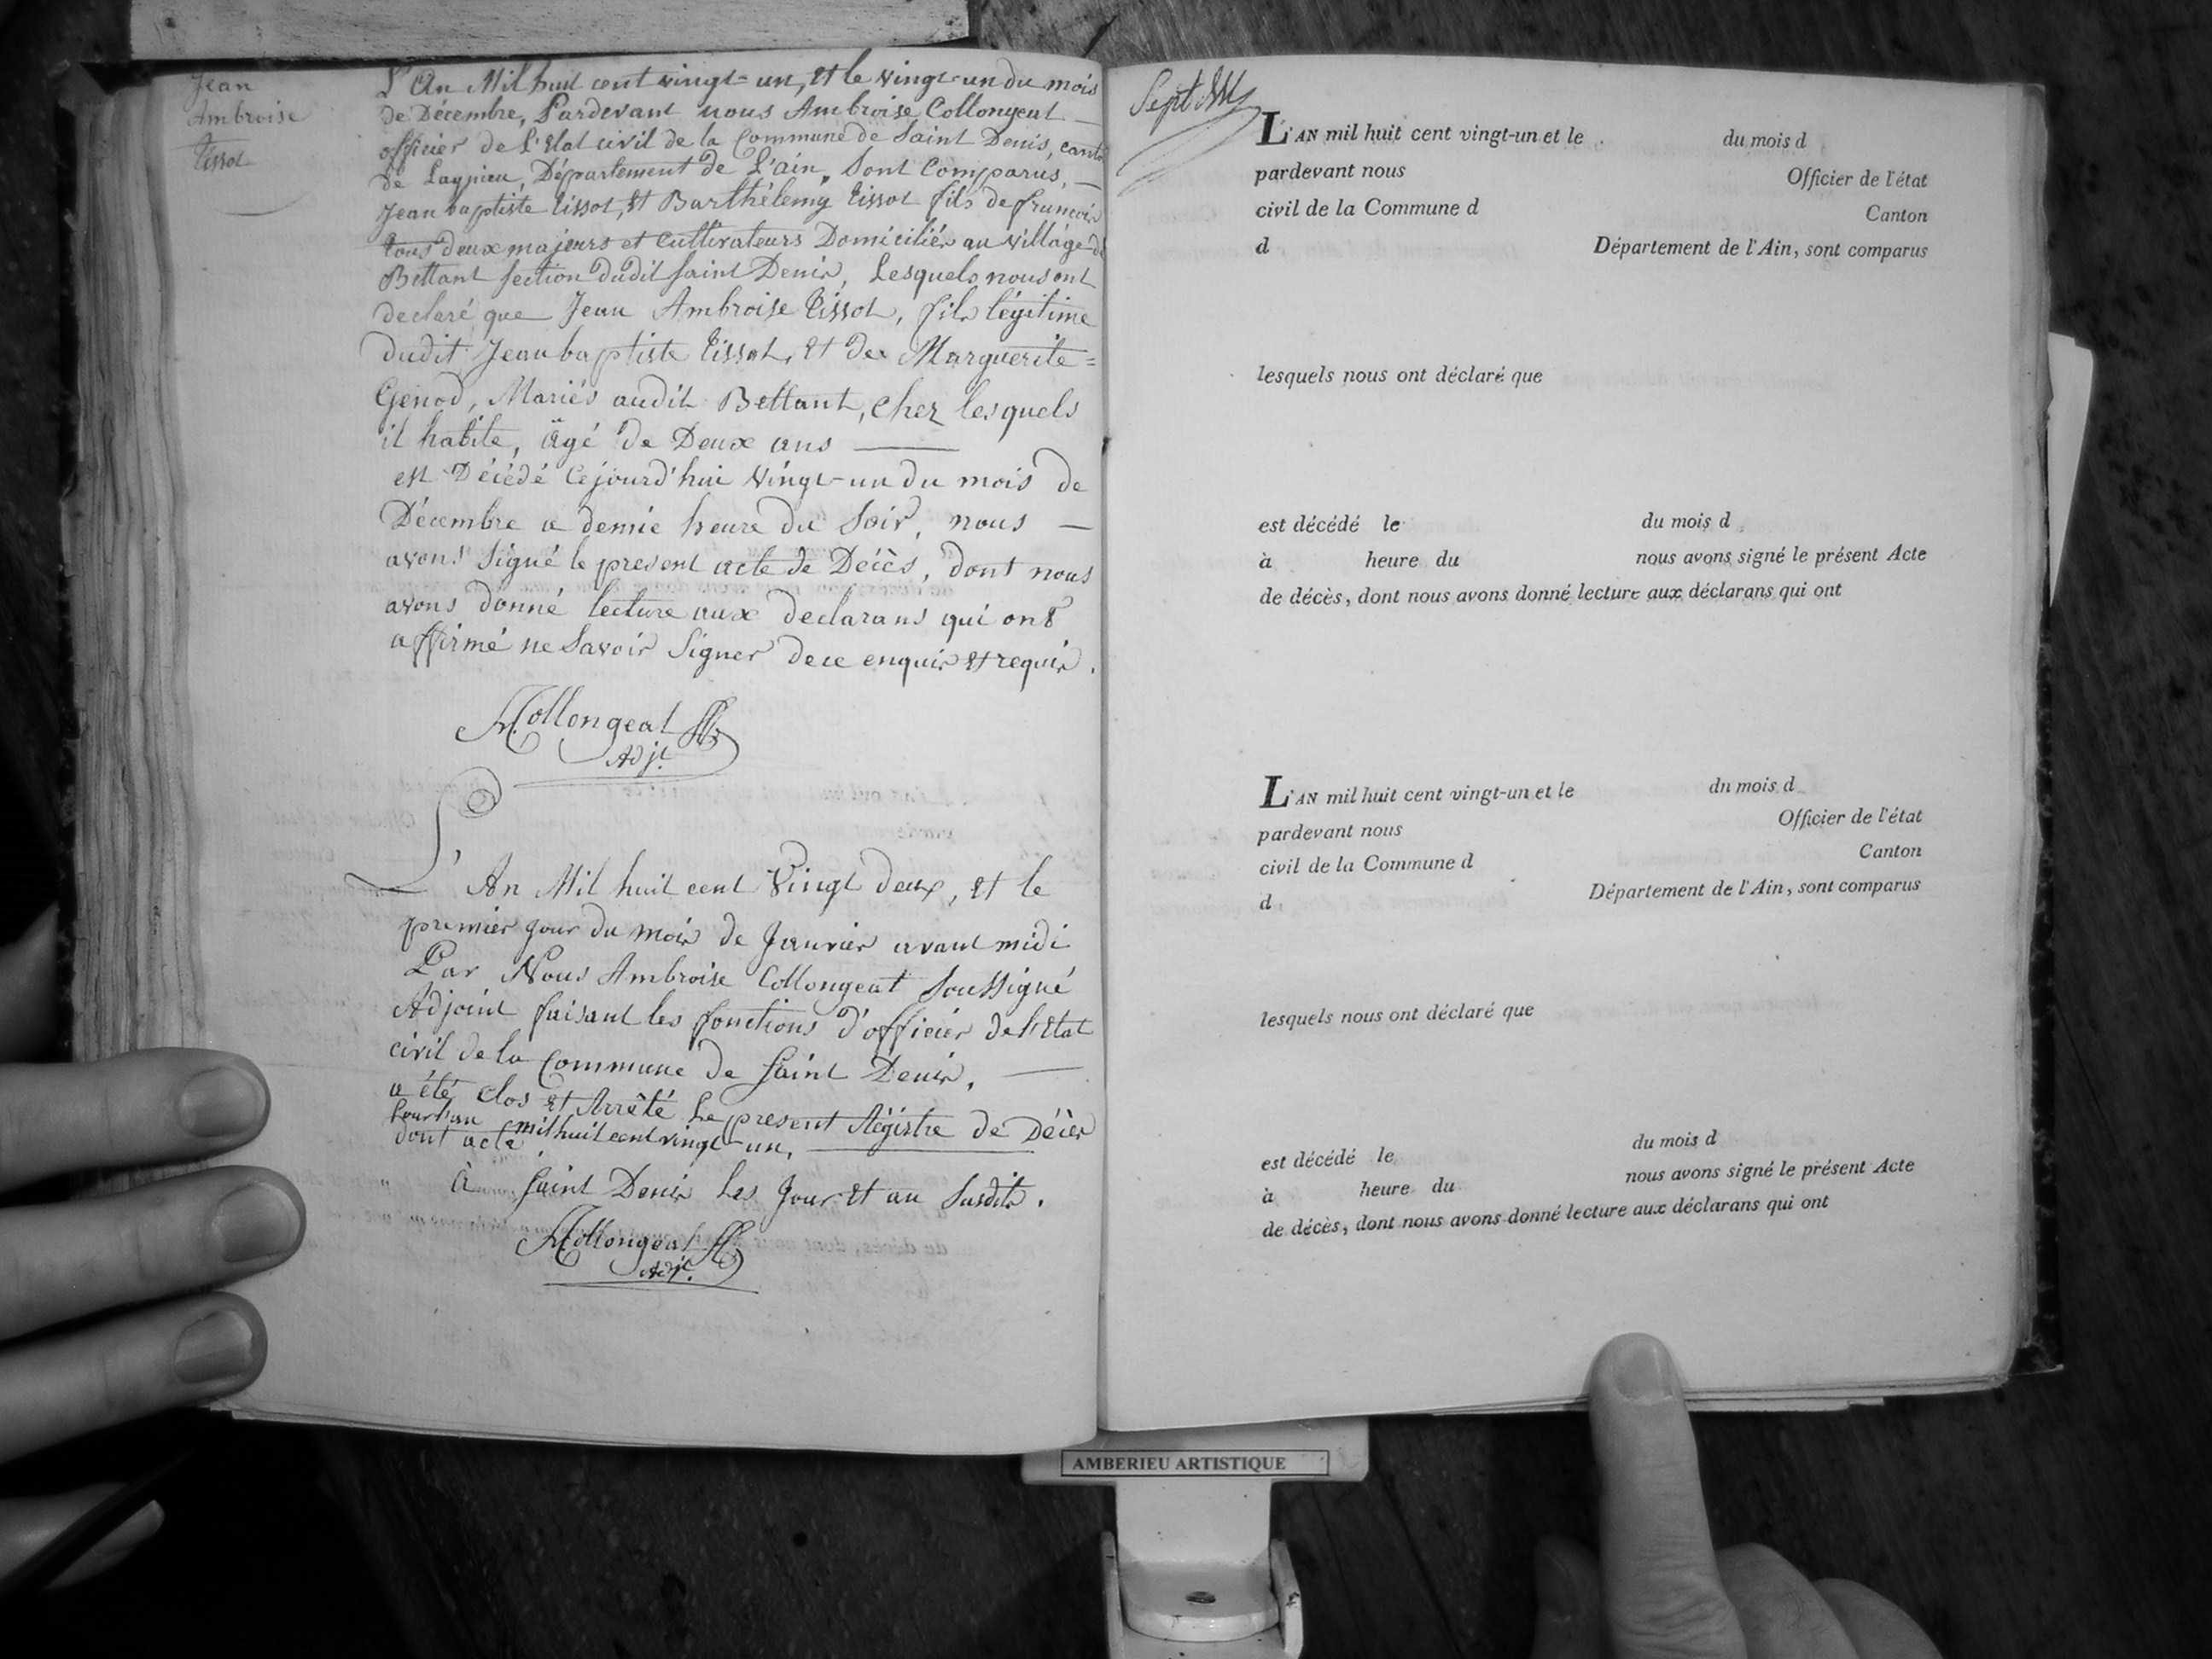 Jean
Ambroise
Tissot
L'An Mil huit cent vingt-un, et le vingt-un du mois
de Décembre, Pardevant nous Ambroise Collongeat
officier de L'Etat civil de la Commune de Saint Denis, canton
de Lagnieu, Département de L'ain, Sont Comparus,
Jean baptiste Tissot, et Barthélemy Tissot fils de françois
tous deux majeurs et Cultivateurs Domiciliés au village de
Bettant section dudit saint Denis, Lesquels nous ont
declaré que Jean Ambroise Tissot, fils légitime
dudit Jean baptiste Tissot, et de Marguerite=
Genod, Mariés audit Bettant, chez lesquels
il habite, âgé de Deux ans
est Décédé Cejourd'hui vingt-un du mois de
Décembre a demie heure du Soir, nous
avons signé le present acte de Décès, dont nous
avons donné lecture aux declarans qui ont
affirmé ne Savoir Signer de ce enquis et requis.
Collongeat
Adjt.
L'An Mil huit cent Vingt deux, et le
premier jour du mois de Janvier avant midi
Par Nous Ambroise Collongeat Soussigné
Adjoint faisant les fonctions d'officier de l'Etat
civil de la Commune de Saint Denis,
a été Clos et Arrêté Le present Régistre de Décès
Pour l'an mil huit cent vingt-un,
dont acte
à Saint Denis Les Jour et an Susdits.
Collongeat
Adjt.
Sept
L'AN mil huit cent vingt-un et le du mois d
pardevant nous Officier de l'état
civil de la Commune d Canton
d Département de l'Ain, sont comparus
lesquels nous ont déclaré que
est décédé le du mois d
à heure du nous avons signé le présent Acte
de décès, dont nous avons donné lecture aux déclarans qui ont
L'AN mil huit cent vingt-un et le du mois d
pardevant nous Officier de l'état
civil de la Commune d Canton
d Département de l'Ain, sont comparus
lesquels nous ont déclaré que
est décédé le du mois d
à heure du nous avons signé le présent Acte
de décès, dont nous avons donné lecture aux déclarans qui ont
AMBERIEU ARTISTIQUE